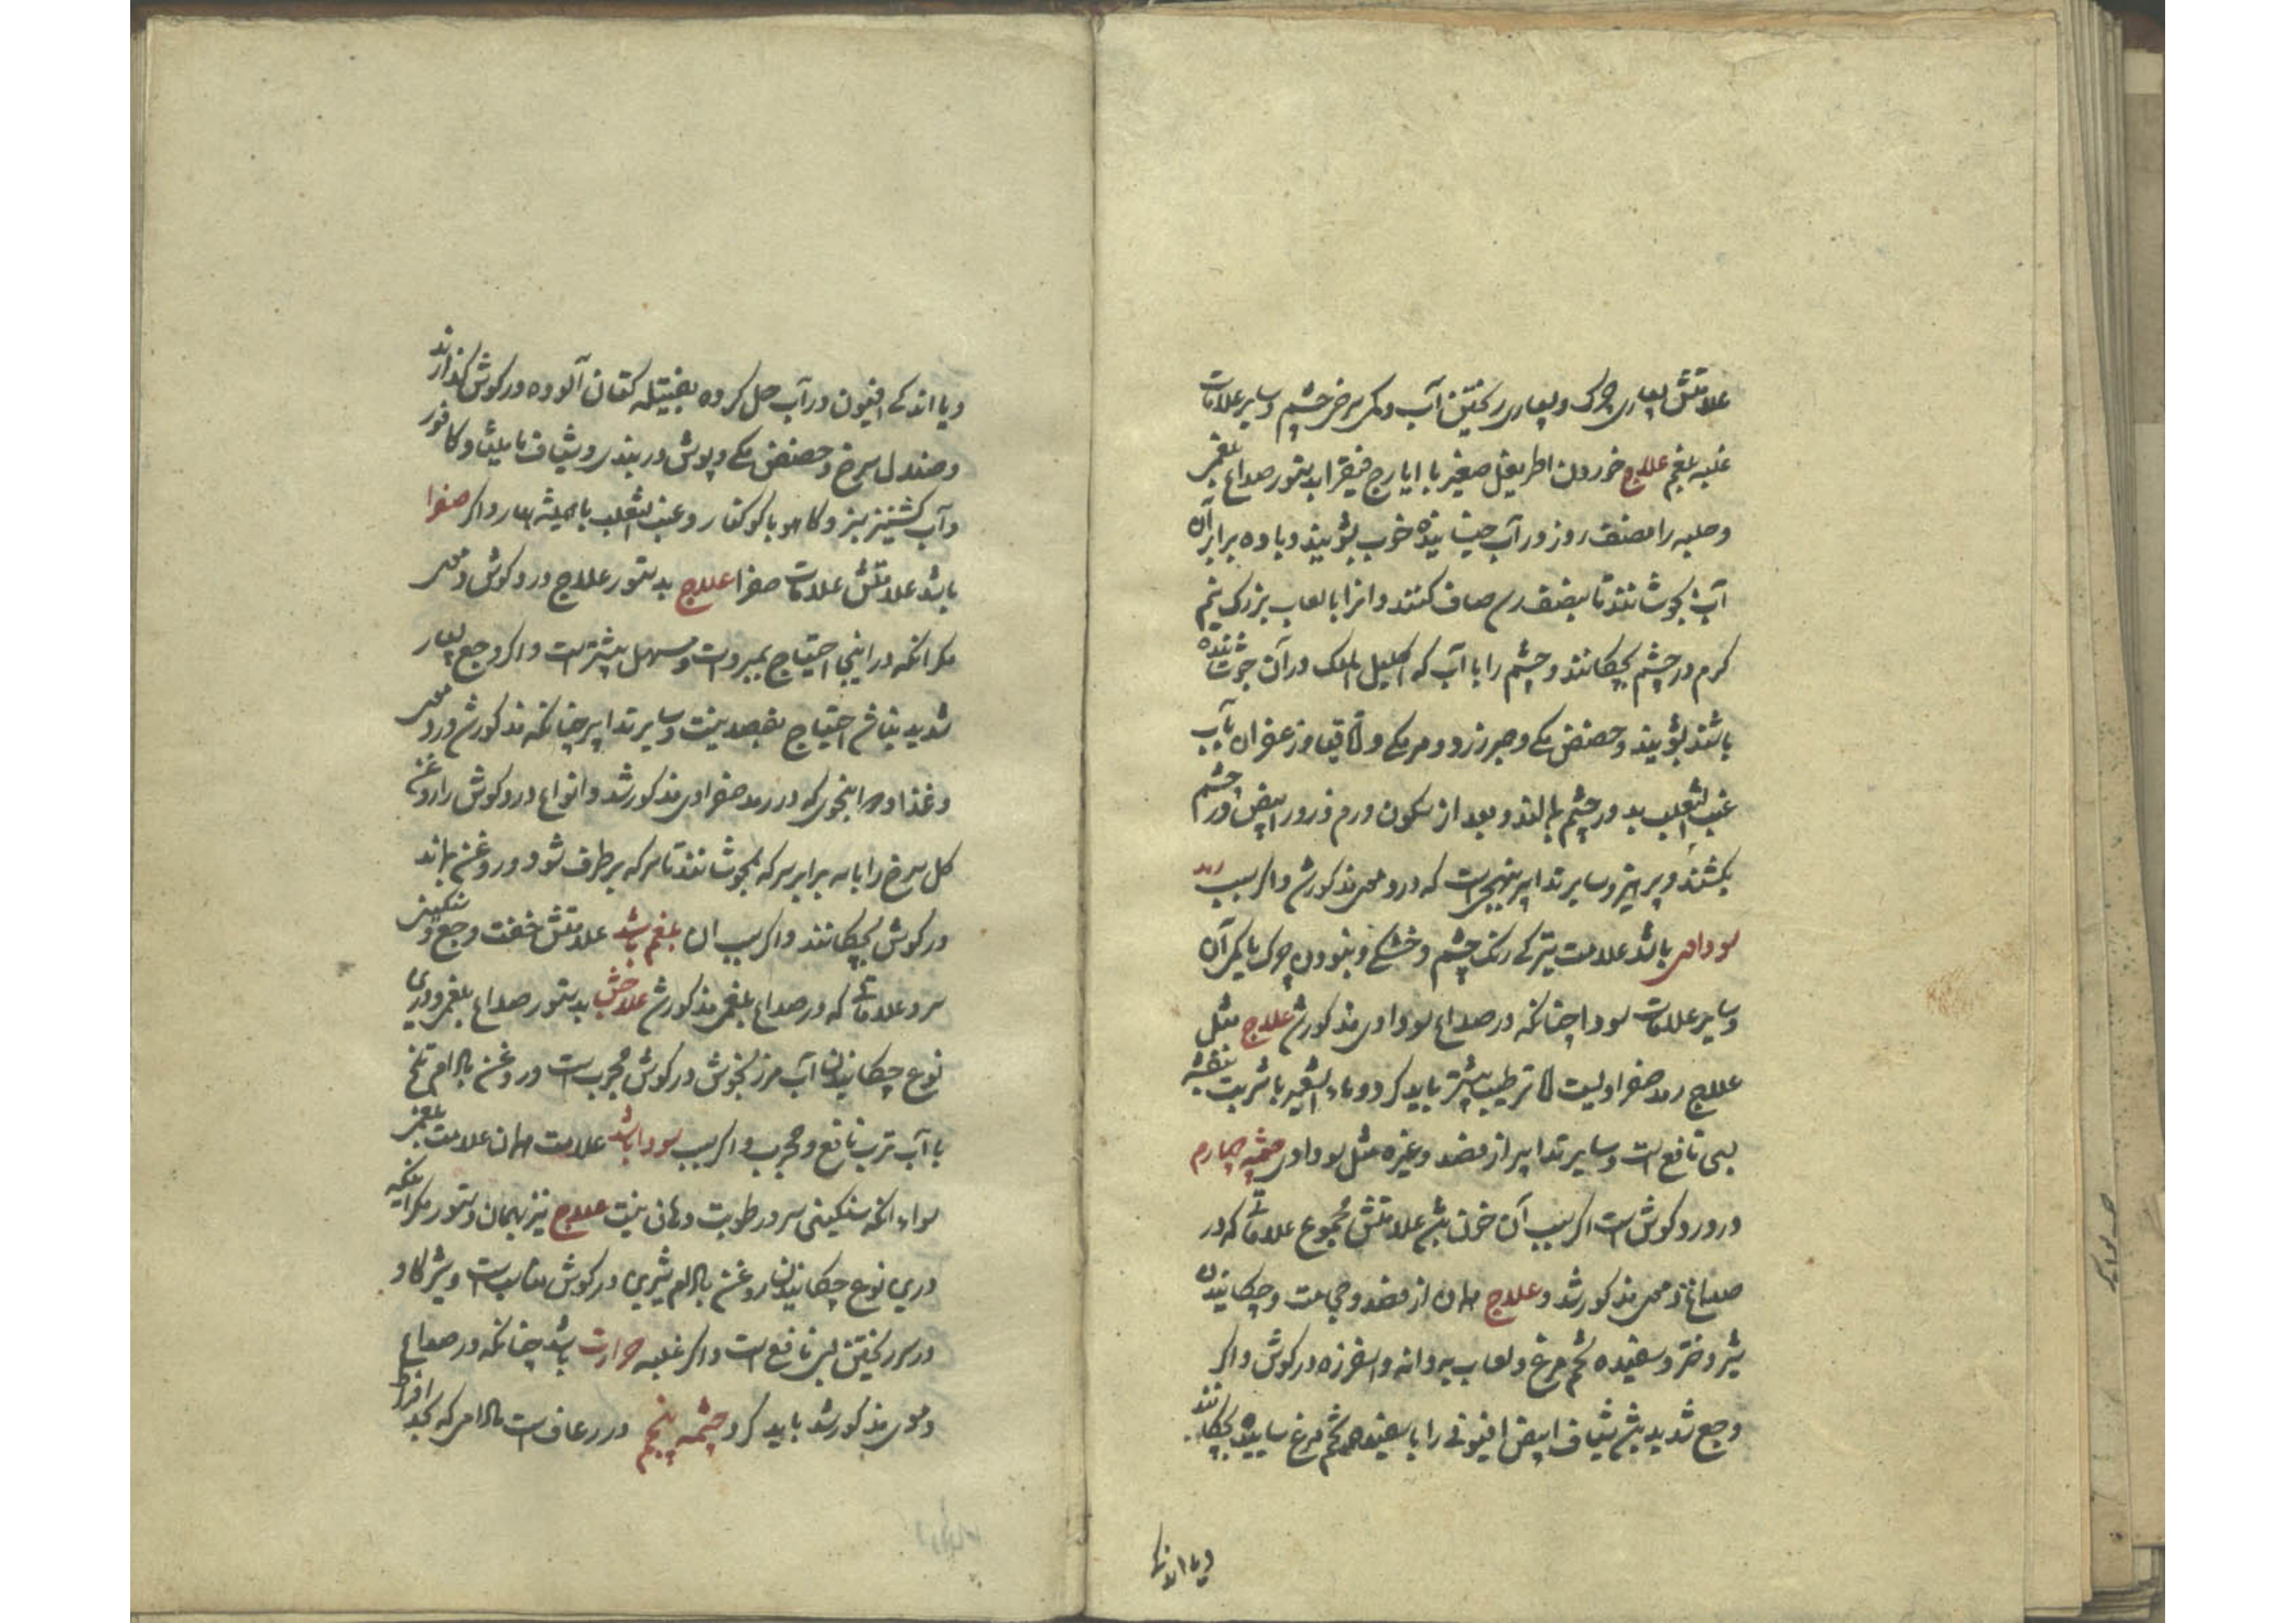 علامتش بسیاری چرک و بسیاری ریختن آب و کمی سرخی چشم و سایر علامات
غلبه بلغم علاج خوردن اطریفل صغیر با ایارج فیقرا بدستور صداع بلغمی
و حلبه را نصف روز در آب خیسانیده خوب بشویند و با ده برابر آن
آب بجوشانند تا بنصف رسد صاف کنند و انرا با لعاب بزرک نیم
کرم در چشم بچکانند و چشم را با آب که اکلیل الملک در آن جوشانده
باشند بشویند و حضض مکی و صبر زرد و مر مکی و اقاقیا و زعفران بآب
عنب الثعلب بر در چشم بمالند و بعد از سکون ورم ذرور ابیض در چشم
بکشند و پرهیز و سایر تدابیر بنهجی است که در دموی مذکور شد و اگر سبب رمد
سوداوی باشد علامت تیرکی رنک چشم و خشکی و نبودن چرک با کمی آن
و سایر علامات سودا چنانکه در صداع سوداوی مذکور شد علاج مثل
علاج رمد صفراویست الا ترطیب بیشتر باید کرد و ماء الشعیر با شربت بنفشه
بسی نافع است و سایر تدابیر از فصد و غیره مثل سوداوی چشمه چهارم
در درد کوش است اگر سبب آن خون باشد علامتش مجموع علاماتی که در
صداع دموی مذکور شد و علاج همان از فصد و حجامت و چکانیدن
شیر دختر و سفیده تخم مرغ و لعاب بهدانه و اسفرزه در کوش و اگر
وجع شدید باشد شیاف ابیض افیونی را با سفیده تخم مرغ ساییده بچکانند
و یا اندکی
و یا اندکی افیون در آب حل کرده بفتیله کتان آلوده در کوش کذارند
و صندل سرخ و حضض مکی و پوش دربندی و شیاف مامیثا و کافور
و آب کشنیز سبز و کاهو یا کوکنار و عنب الثعلب یا همیشه بهار و اگر صفرا
باشد علامتش علامات صفرا علاج بدستور علاج درد کوش دموی
مکر انکه در اینجا احتیاج بمبردات و مسهل بیشتر است و اگر وجع بسیار
شدید نباشد احتیاج بفصد نیست و سایر تدابیر چنانکه مذکور شد در دموی
و غذا و دوا بنحوی که در رمد صفراوی مذکور شد و انواع درد کوش را روغن
کل سرخ را با سه برابر سرکه بجوشانند تا سرکه برطرف شود و روغن بماند
در کوش بچکانند و اگر سبب ان بلغم باشد علامتش خفت وجع و سنکینی
سر و علاماتی که در صداع بلغمی مذکور شد علاجش بدستور صداع بلغمی و درین
نوع چکانیدن آب مرزنجوش در کوش مجرب است و روغن بادام تلخ
با آب ترب نافع و مجرب و اگر سبب سودا باشد علامت همان علامت بلغمی
سواء انکه سنکینی سر و رطوبت دهان نیست علاج نیز بهمان دستور مکر اینکه
درین نوع چکانیدن روغن بادام شیرین در کوش مناسب است و شیر کاو
در سر ریختن بس نافع است و اگر غلبه حرارت باشد چنانکه در صداع
دموی مذکور شد باید کرد چشمه پنجم در رعاف است مادامی که بحد افراط